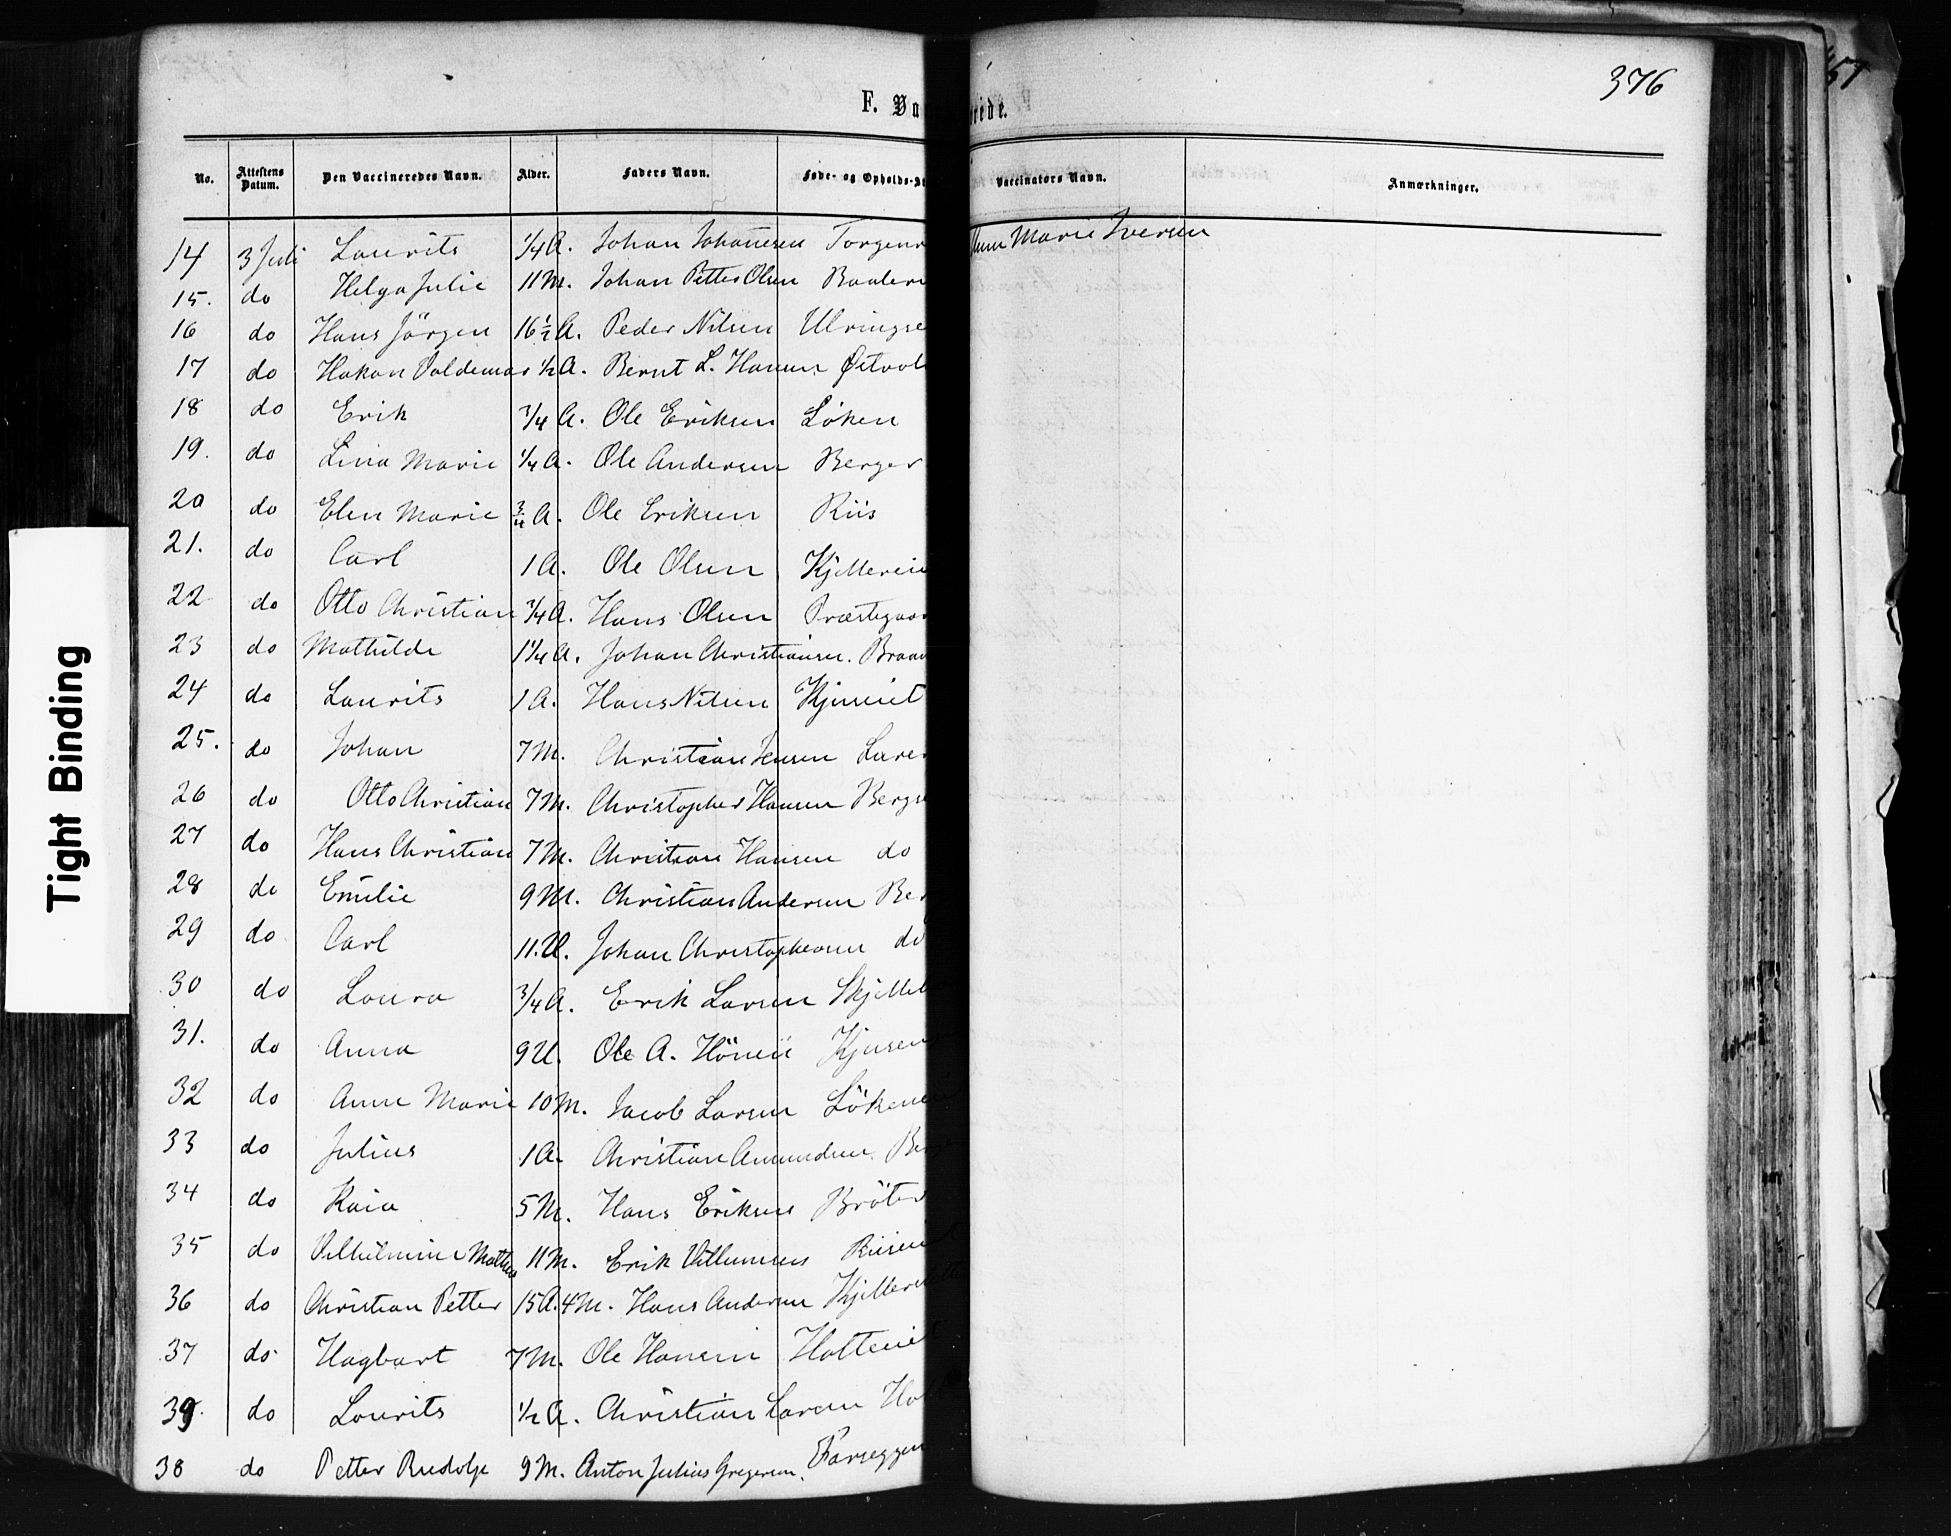 376
57
F. Va rede.
No. Attestens Datum. Den Vaccineredes Navn. Alder. Faders Navn. Føde- og Opholds-St Vaccinators Navn. Anmærkninger.
14 3 Juli Laurits 1/4 A. Johan Johannesen Torgenr Marie Iversen
15. do Helga Julie 11 M. Johan Petter Olsen Baaler
16 do Hans Jörgen 16 1/2 A. Peder Nilsen Ulringse
17 do Hakon Valdemar 1/2 A. Bernt L. Hansen Østvol
18 do Erik 3/4 A. Ole Eriksen Löken
19. do Lina Marie 1/4 A. Ole Andersen Berger
20 do Elen Marie 3/4 A. Ole Eriksen Riis
21. do Carl 1 A. Ole Olsen Kjillerei
22 do Otto Christian 3/4 A. Hans Olsen Præstegaar
23 do Mathilde 1 1/4 A. Johan Christiansen. Braa
24 do Laurits 1 A. Hans Nilsen Kjuseiet
25. do Johan 7 M. Christian Jensen
26 do Otto Christian 7 M. Christopher Hansen Bergs
27 do Hans Christian 7 M. Christian Hansen do
28 do Emilie 9 M. Christian Andersen Be
29 do Carl 11. U. Johan Christophersen do
30 do Laura 3/4 A. Erik Larsen Skjille
31. do Anna 9 U. Ole A. Kjusen
32 do Anne Marie 10 M. Jacob Larsen Lökene
33 do Julius 1 A. Christian Amundsen. Be
34 do Kaia 5 M. Hans Eriksen Bröter
35 do Vilhelmine Mathea 11 M. Erik Villumsen Riisei
36 do Christian Petter 15 A. 4 M. Hans Andersen Kjiller
37 do Hagbart 7 M. Ole Hansen Holteiet
39. do Lourits 1/2 A. Christian Larsen Ho
38 do Petter Rudolf 9 M. Anton Julius Gregersen. Farseggen
Tight Binding